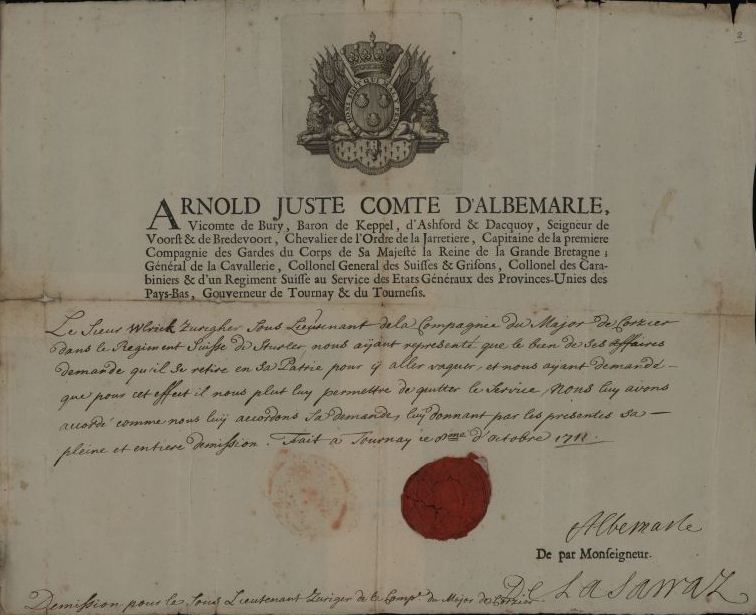 2
ARNOLD JUSTE COMTE D'ALBEMARLE,
Vicomte de Bury, Baron de Keppel, d'Ashford & Dacquoy, Seigneur de
Voorſt & de Bredevoort, Chevalier de l'Ordre de la Jarretiere, Capitaine de la premiere
Compagnie des Gardes du Corps de Sa Majeſté la Reine de la Grande Bretagne;
Général de la Cavallerie, Collonel General des Suiſſes & Griſons, Collonel des Cara-
biniers & d'un Regiment Suiſſe au Service des Etats Généraux des Provinces-Unies des
Pays-Bas, Gouverneur de Tournay & du Tourneſis.
Le Sieur Wlrick Zurigher Sous Lieutenant de la Compagnie du Major de Corzier
dans le Regiment Suisse de Sturler, nous aÿant representé que le bien de ses affaires
demande qu'il se retire en sa Patrie pour ÿ aller vaguer, et nous ayant demandé –
que pour cet effect il nous plut luy permettre de quitter le Service, Nous luy avons
accordé comme nous luy accordons sa demande, luy donnant par les presentes sa —
pleine et entiere demission. Fait a Tournay ce d'octobre 1711.
Albemarle
De par Monſeigneur.
LaSarraZ
Demission pour le Sous Lieutenant Zuriger de la Comp. du Major de Corzier